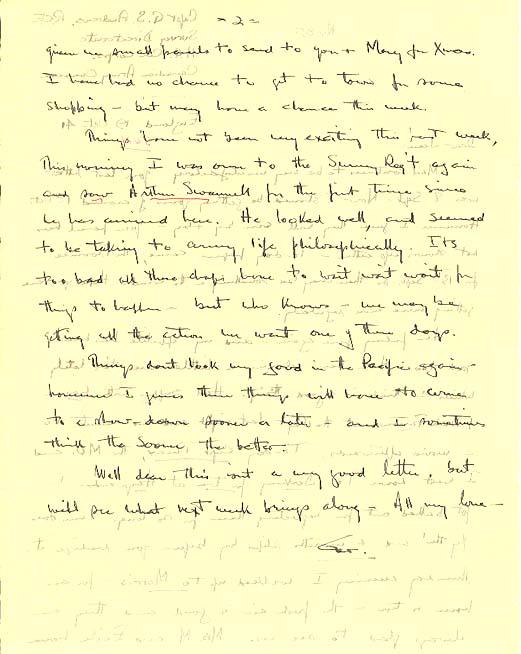 - 2 -
given me small parcels to send to you + Mary for Xmas.
I have had no chance to get to town for some
shopping - but may have a chance this week.
Things have not been very exciting this past week,
This morning I was over to the Survey Reg't again
and saw Arthur Swannell for the first time since
he has arrived here. He looked well, and seemed
to be taking to army life philosophically. Its
too bad all these chaps have to wait wait wait for
things to happen - but who knows - we may be
getting all the action we want one of these days.
Things dont look very good in the Pacific again -
however I guess these things will have to come
to a show-down sooner or later + and I sometimes
think the sooner the better.
Well dear this isnt a very good letter, but
will see what next week brings along - All my love -